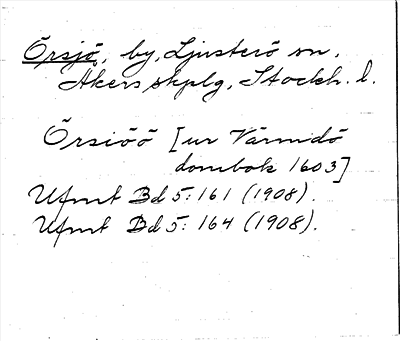 Örsjö, by, Ljusterö sn.
Åkers skplg, Stockh. l.
Örsiöö [ur Värmdö
dombok 1603]
Ufmt Bd 5: 161 (1908).
Ufmt Bd 5: 164 (1908).